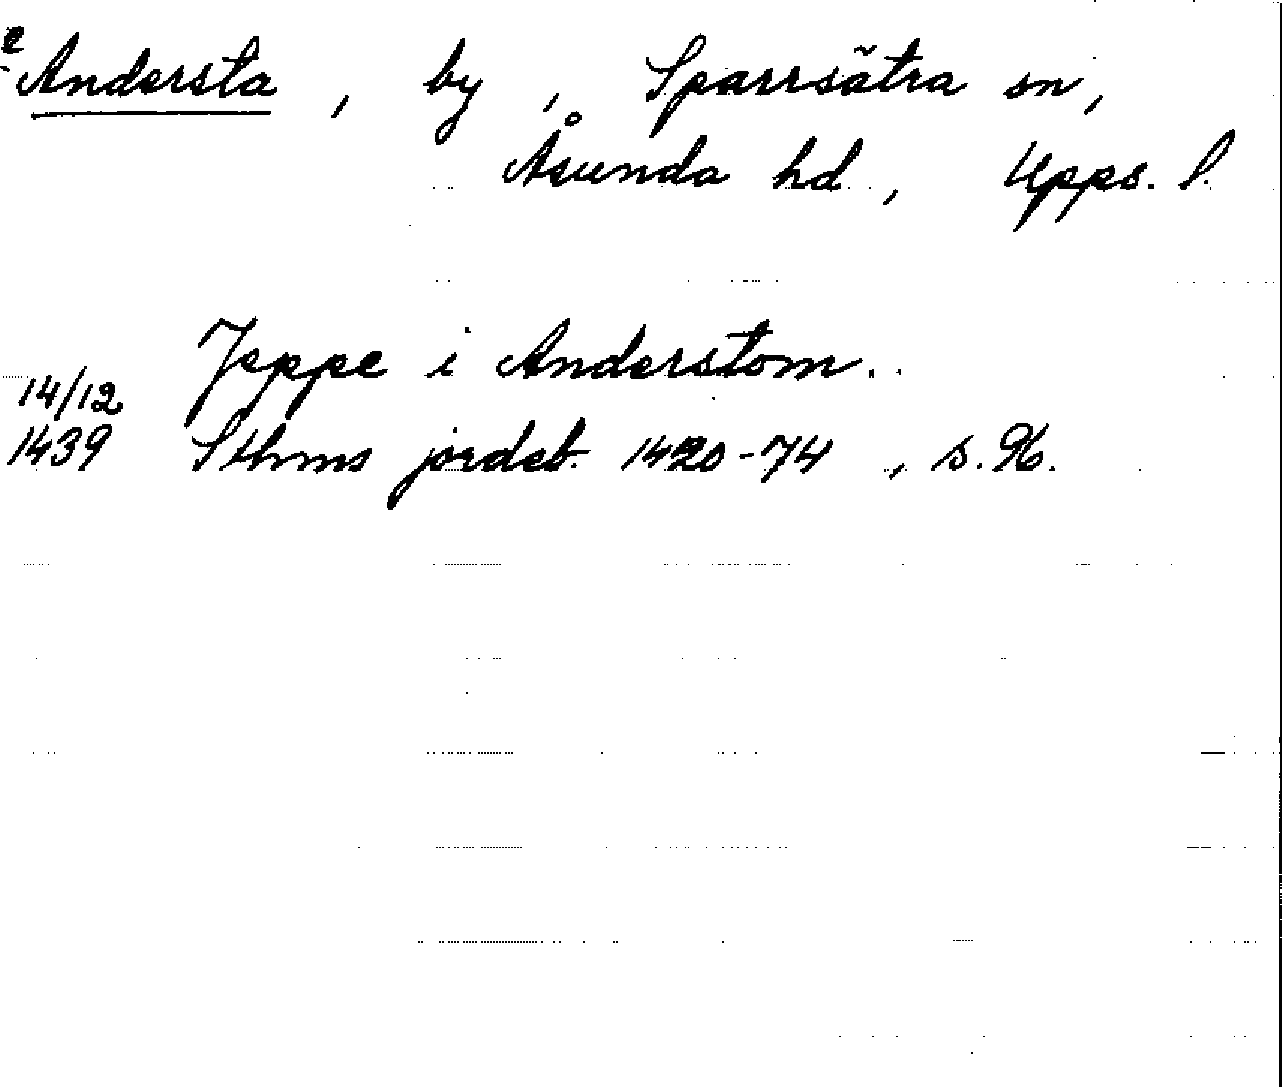 Andersta, by, Sparrsätra sn,
Åsunda hd, Upps. l.
Jeppe i Anderstom..
14/12
1439 Sthms jordeb. 1420-74, s. 96.